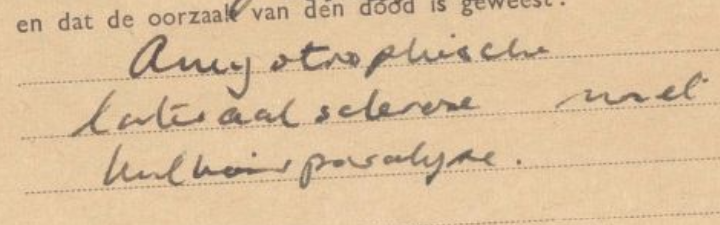 en dat de oorzaak van den dood is geweest:
Amyotrophische
lateraalsclerose met
bulbairparalyse.